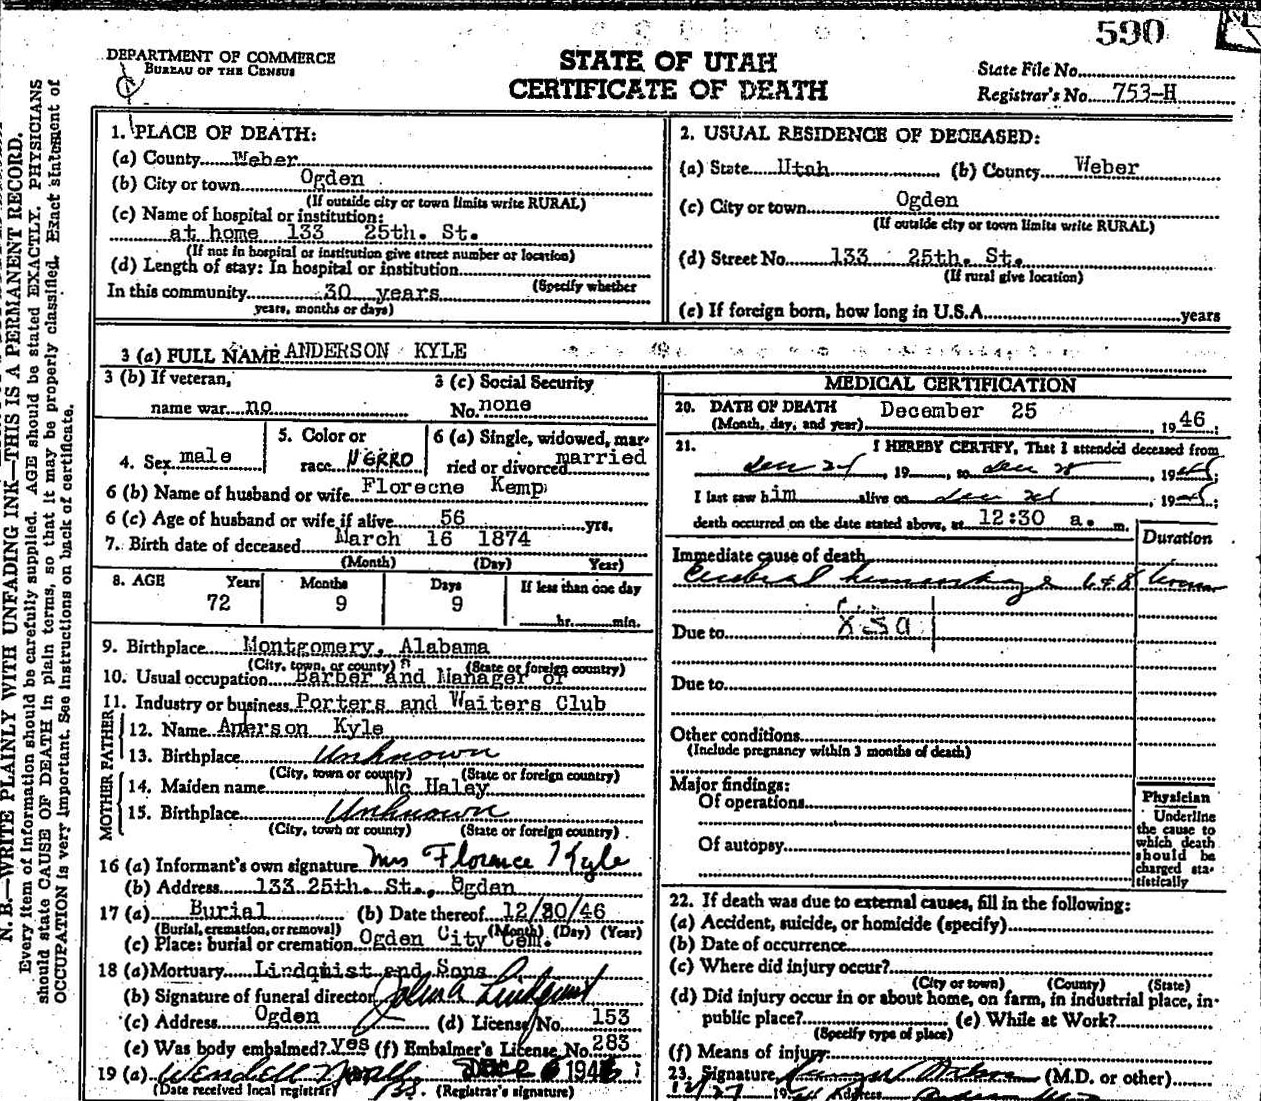 590
DEPARTMENT OF COMMERCE
BUREAU OF THE CENSUS
STATE OF UTAH
CERTIFICATE OF DEATH
State File No.
Registrar's No. 753-H
N. B.—WRITE PLAINLY WITH UNFADING INK—THIS IS A PERMANENT RECORD.
Every item of information should be carefully supplied. AGE should be stated EXACTLY. PHYSICIANS
should state CAUSE OF DEATH in plain terms, so that it may be properly classified. Exact statement of
OCCUPATION is very important. See instructions on back of certificate.
1. PLACE OF DEATH:
(a) County Weber
(b) City or town Ogden
(If outside city or town limits write RURAL)
(c) Name of hospital or institution:
at home 133 25th. St.
(If not in hospital or institution give street number or location)
(d) Length of stay: In hospital or institution
(Specify whether
In this community 30 years
years, months or days)
2. USUAL RESIDENCE OF DECEASED:
(a) State Utah (b) County Weber
(c) City or town Ogden
(If outside city or town limits write RURAL)
(d) Street No. 133 25th. St.
(If rural give location)
(e) If foreign born, how long in U.S.A. years
3 (a) FULL NAME ANDERSON KYLE
3 (b) If veteran,
name war no
3 (c) Social Security
No. none
4. Sex male
5. Color or
race NEGRO
6 (a) Single, widowed, mar-
ried or divorced married
6 (b) Name of husband or wife Florecne Kemp
6 (c) Age of husband or wife if alive 56 yrs.
7. Birth date of deceased March 16 1874
(Month) (Day) Year)
8. AGE Years Months Days If less than one day
72 9 9 hr. min.
9. Birthplace Montgomery, Alabama
(City, town, or county) (State or foreign country)
10. Usual occupation Barber and Manager of
11. Industry or business Porters and Waiters Club
FATHER
12. Name Anerson Kyle
13. Birthplace Unknown
(City, town or county) (State or foreign country)
MOTHER
14. Maiden name Mc Haley
15. Birthplace Unknown
(City, town or county) (State or foreign country)
16 (a) Informant's own signature Mrs Florence Kyle
(b) Address 133 25th. St., Ogden
17 (a) Burial (b) Date thereof 12/30/46
(Burial, cremation, or removal) (Month) (Day) (Year)
(c) Place: burial or cremation Ogden City Cem.
18 (a) Mortuary Lindquist and Sons
(b) Signature of funeral director John A Lindquist
(c) Address Ogden (d) License No. 153
(e) Was body embalmed? yes (f) Embalmer's License No. 283
19 (a) Wendell DEC 26 1946
(Date received local registrar) (Registrar's signature)
MEDICAL CERTIFICATION
20. DATE OF DEATH December 25
(Month, day, and year) , 19 46 ;
21. I HEREBY CERTIFY, That I attended deceased from
, 19 , to , 19 ;
I last saw him alive on , 19 ;
death occurred on the date stated above, at 12:30 a. m.
Duration
Immediate cause of death
Cerebral hemorrhage
Due to
Due to
Other conditions
(Include pregnancy within 3 months of death)
Major findings:
Of operations
Of autopsy
Physician
Underline
the cause to
which death
should be
charged sta-
tistically
22. If death was due to external causes, fill in the following:
(a) Accident, suicide, or homicide (specify)
(b) Date of occurrence
(c) Where did injury occur?
(City or town) (County) (State)
(d) Did injury occur in or about home, on farm, in industrial place, in-
public place? (e) While at Work?
(Specify type of place)
(f) Means of injury:
23. Signature (M.D. or other)
12/27 19 Address